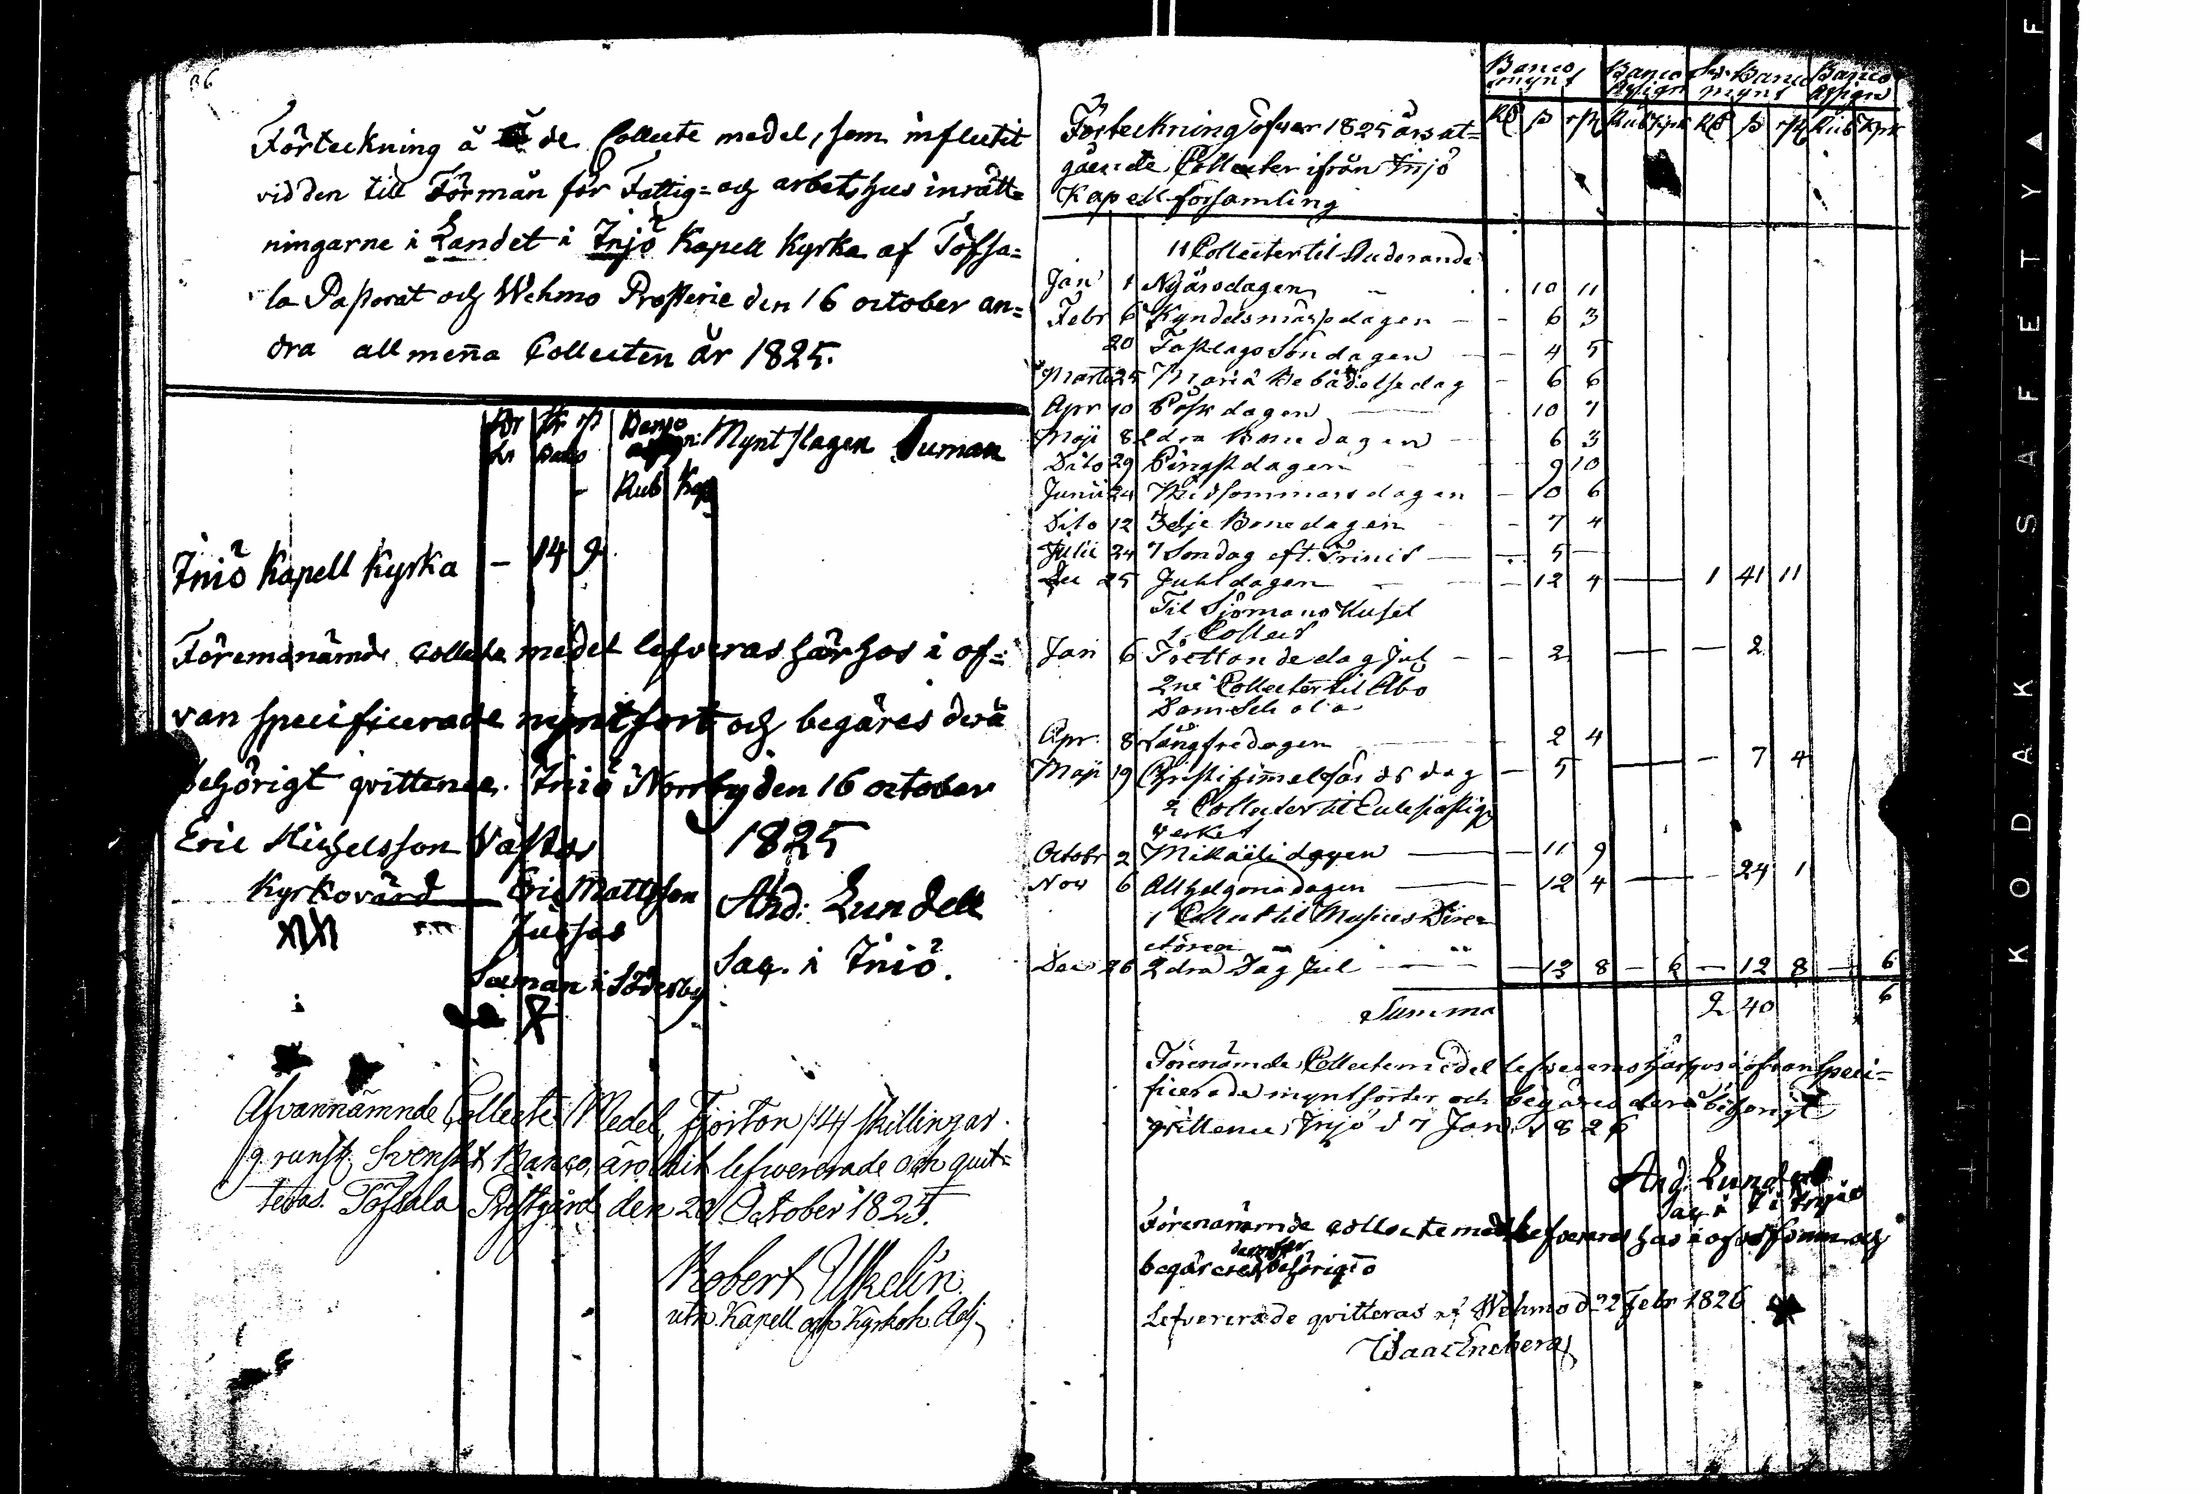 36
Förteckning å de Collecte medel, som influtit
vid den till Förmån för Fattig= och arbetshus inrätt=
ningarne i Landet i Iniö Kapell Kyrka af Töfsa=
la Pastorat och Wehmo Prosterie den 16 october an=
dra allmena Collecten år 1825.
Banco Mynt slagen Suman
Rub Kop
Iniö Kapell Kyrka – 14 9
Föremnämde collecte medel lefveras härhos i of=
van specificerade myntsort och begäres derå
behörigt qvittence. Iniö Norrby den 16 october
1825
Eric Michelsson Västas
Kyrkovärd
Eric Mattsson
Jussas
Sexman i Söderby
And: Lundell
Sac. i Iniö.
Afvannämnde Collecte Medel, Fjorton /14/ skillingar
9 runst. Svenskt Banco, äro hit lefwererade och quit=
teras. Töfsala Prästgård den 20 October 1825.
Robert Ukelin
utn. Kapell. och Kyrkoh. Adj.
Banco mynt Banco Assign Banco mynt Banco Assign
Rub Kpk Rub Kpk
Förteckning öfver 1825 års ut=
gående Collecter ifrån Injö
Kapellförsamling
11 Collecter til Studerande
Jan 1 Nyårsdagen – 10 11
Febr 6 Kyndelsmässodagen – – 6 3
20 Fastlags Söndagen – 4 5
Martii 25 Mariä Bebådelsedag – 6 6
Apr 10 Påskdagen 10 7
Maji 8 2dra Bönedagen – 6 3
Dito 29 Pingstdagen 9 10
Junii 24 Midsommarsdagen – 10 6
Dito 12 3dje Bönedagen – 7 4
Julii 24 7 Söndag eft. Trinit – 5 –
Dec 25 Juhldagen – 12 4 – 1 41 11
Til Sjömans Huset
1. Collect
Jan 6 Trettonde dag Jul – – 2 – – 2
2ne Collecter til Åbo
Domschola
Apr 8 Långfredagen – 2 4
Maji 19 Christi himmelsfärds dag – 5 – – 7 4
2 Collecter til Ecclesiastiq
verket
Octobr 2 Mikaëli dagen – 11 9
Nov 6 Allhelgonadagen – 12 4 – – 24 1
1 Collect til Musices Direc
tören
Dec 26 2dra Dag Jul – 12 8 – 6 – 12 8 – 6
Summa 2 40 6
Förenämde Collectemedel lefvereras härhos i ofvan speci=
ficerade myntsorter och begäres derå behörigt
qvittence, Injö d 7 Jan 1826
And. Lundell
Sac. i Injö
Förenämnde collecte medel lefvereras
begäres behörigt
Lefvererade qvitteras af Wehmo d 22 Febr 1826
KODAK SAFETY ▲ F